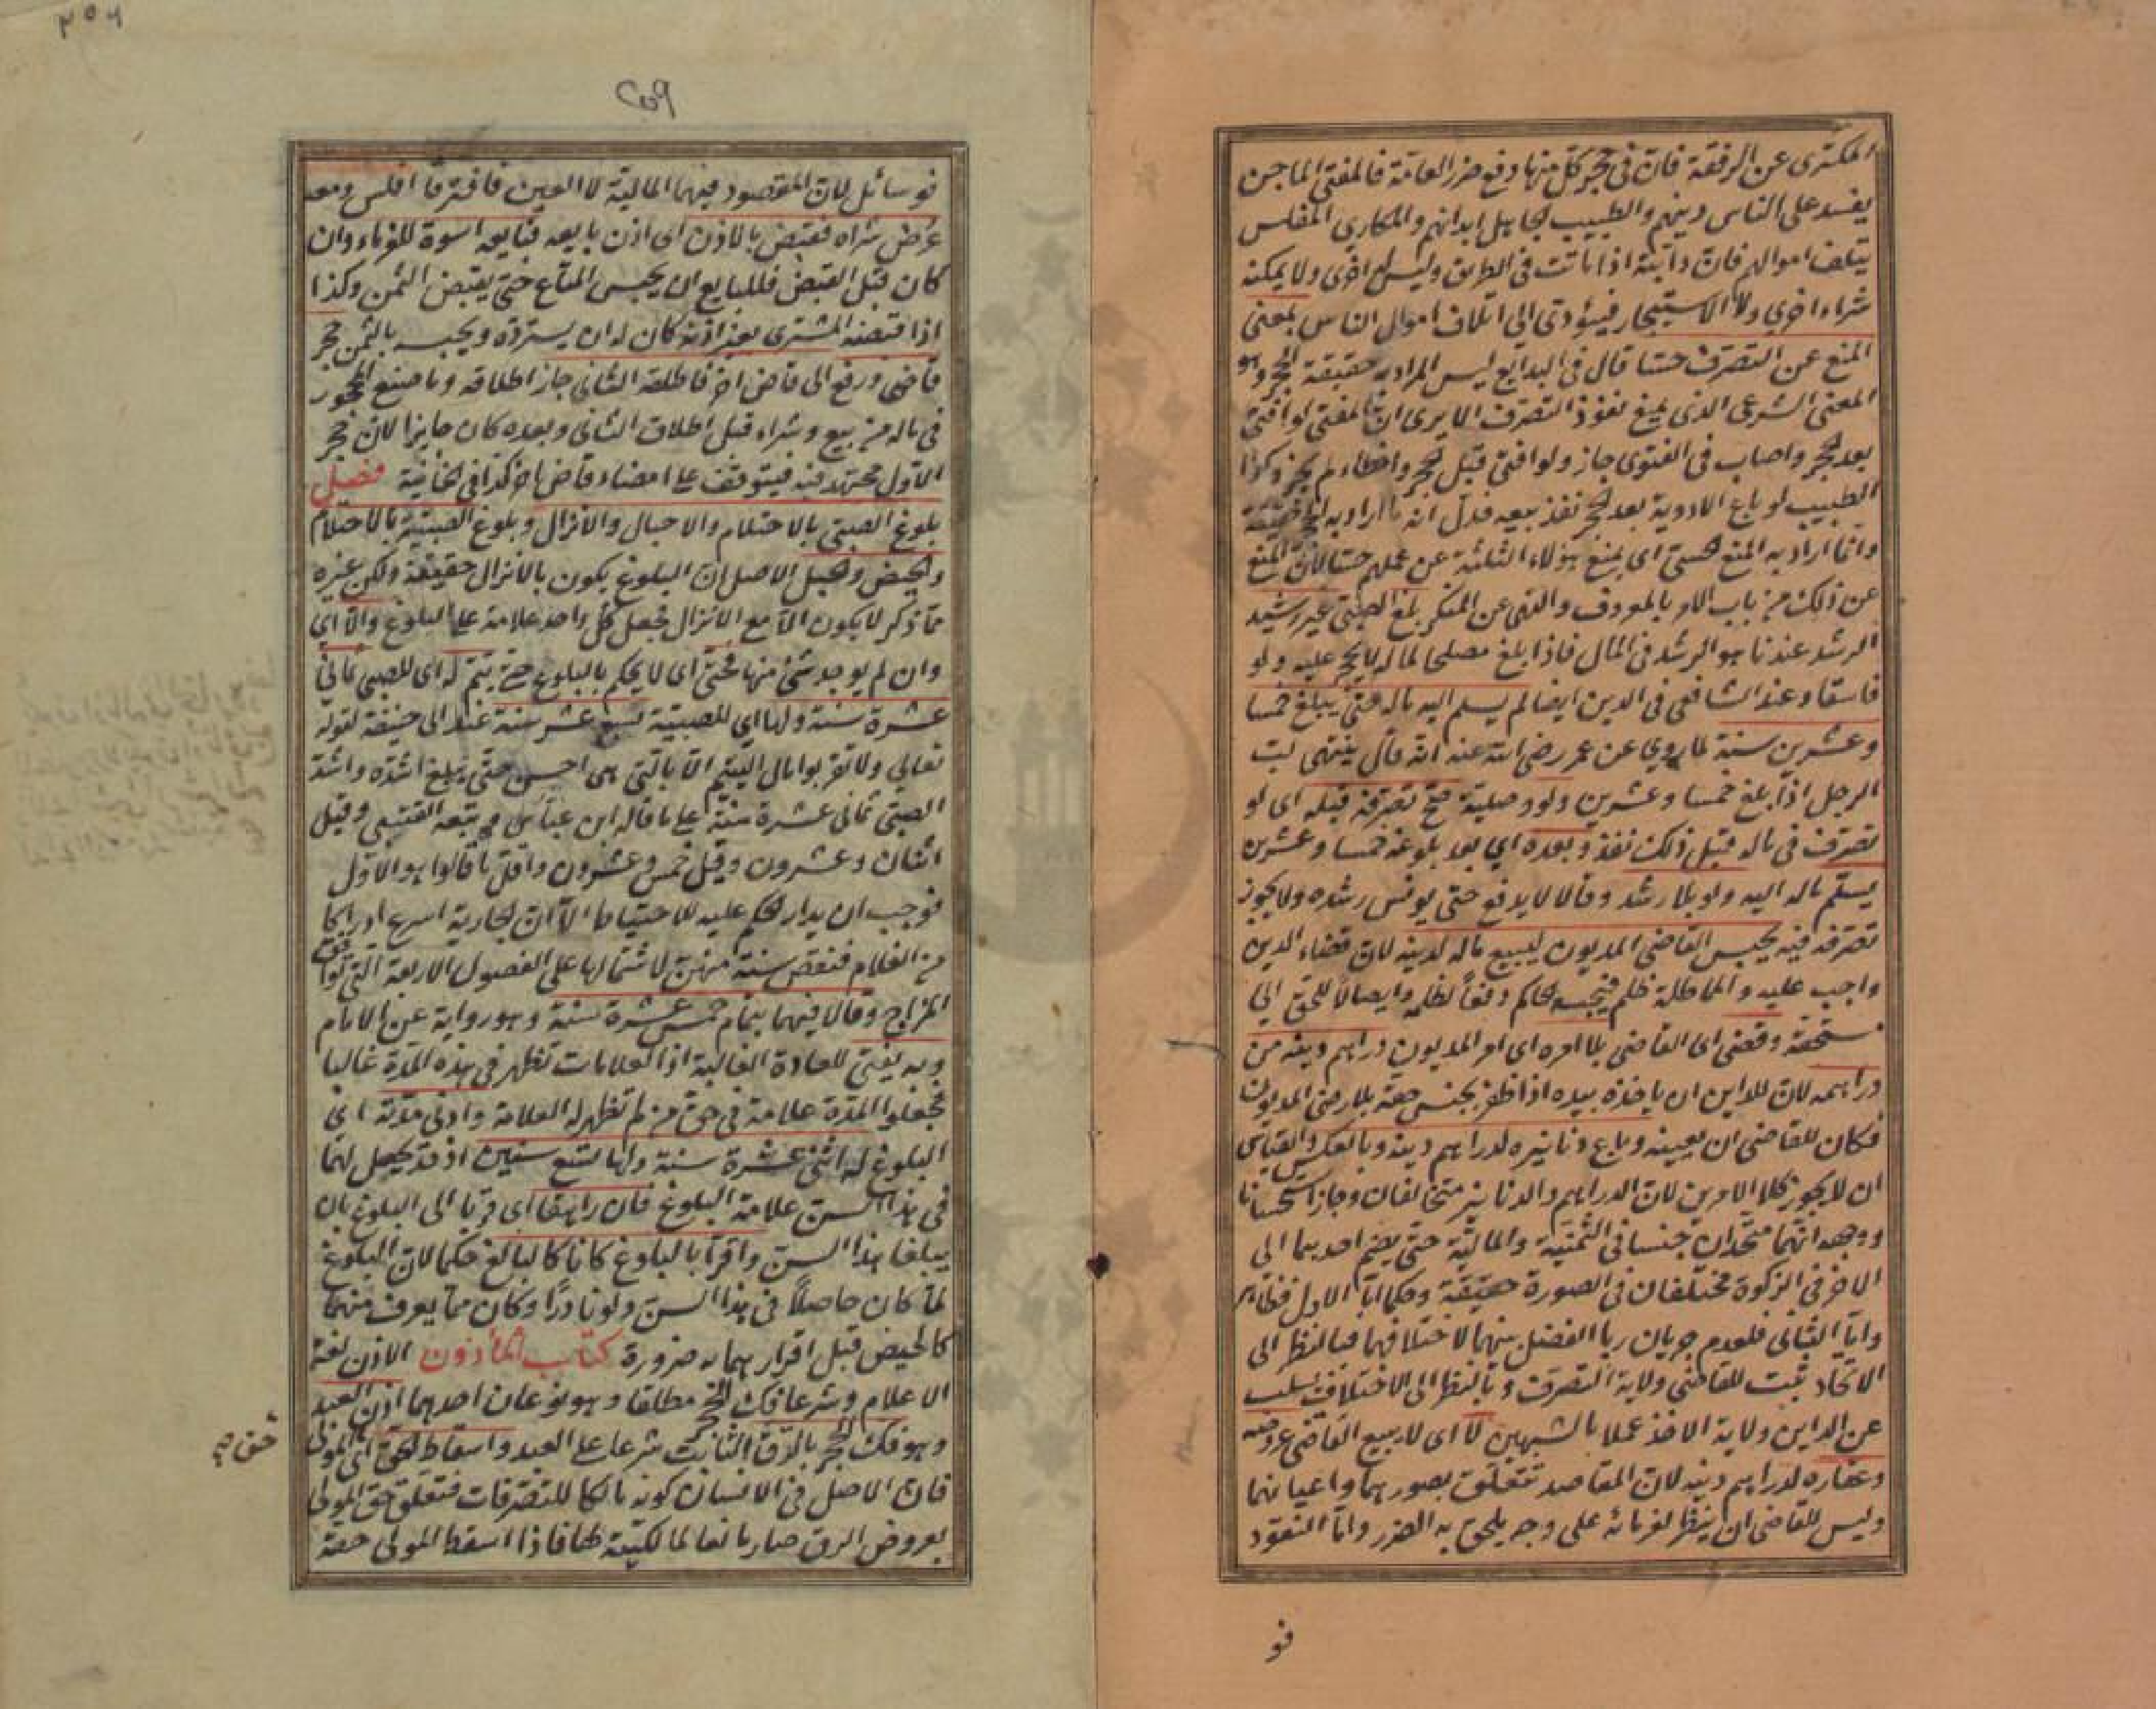 المكترى عن الرفقة فان في حجر كل منها دفع ضرر العامة فالمفتى الماجن
يفسد على الناس دينهم والطبيب الجاهل ابدانهم والمكارى المفلس
يتلف اموالهم فان دابته اذا ماتت في الطريق وليس له اخرى ولا يمكنه
شراء اخرى ولا الاستيجار فيؤدى الى اتلاف اموال الناس بمعنى
المنع عن التصرف حسّا قال في البدايع ليس المراد به حقيقة الحجر وهو
المعنى الشرعى الذى يمنع نفوذ التصرف الا يرى ان المفتى لو افتى
بعد الحجر واصاب في الفتوى جاز ولو افتى قبل الحجر واخطاء لم يجز وكذا
الطبيب لو باع الادوية بعد الحجر نفذ بيعه فدل انه ما اراد به الحجر حقيقة
وانما اراد به المنع الحسى اى يمنع هؤلاء الثلثة عن عملهم حسّا لان المنع
عن ذلك من باب الامر بالمعروف والنهى عن المنكر بلغ الصبى غير رشيد
الرشد عندنا هو الرشد في المال فاذا بلغ مصلحا لماله لا يحجر عليه ولو
فاسقا وعند الشافعى في الدين ايضا لم يسلم اليه ماله حتى يبلغ خمسا
وعشرين سنة لما روي عن عمر رضى الله عنه انه قال ينتهى لب
الرجل اذا بلغ خمسا وعشرين ولو وصلية صح تصرفه قبله اى لو
تصرف في ماله قبل ذلك نفذ وبعده اي بعد بلوغه خمسا وعشرين
يسلم ماله اليه ولو بلا رشد وقالا لا يدفع حتى يونس رشده ولا يجوز
تصرفه فيه يحبس القاضى المديون ليبيع ماله لدينه لان قضاء الدين
واجب عليه والمماطلة ظلم فيحبسه الحاكم دفعاً لظلمه وايصالا للحق الى
مستحقه وقضى اى القاضى بلا امره اى امر المديون دراهم دينه من
دراهمه لان للداين ان ياخذه بيده اذا ظفر بجنس حقه بلا رضى المديون
فكان للقاضى ان يعينه وباع دنانيره لدراهم دينه وبالعكس والقياس
ان لا يجوز كلا الامرين لان الدراهم والدنانير مختلفان وجاز استحسانا
ووجهه انهما متحدان جنسا في الثمنية والمالية حتى يضم احدهما الى
الاخر في الزكوة مختلفان في الصورة حقيقة وحكما اما الاول فظاهر
واما الثانى فلعدم جريان ربا الفضل بينهما لاختلافهما فبالنظر الى
الاتحاد ثبت للقاضى ولاية التصرف وبالنظر الى الاختلاف يسلب
عن الداين ولاية الاخذ عملا بالشبهين لا اى لا يبيع القاضى عروضه
وعقاره لدراهم دينه لان المقاصد تتعلق بصورهما واعيانهما
وليس للقاضى ان ينظر لغرمائه على وجه يلحق به الضرر واما النقود
فو
٢٥٩
٣٥٦
فوسائل لان المقصود فيهما المالية لا العين فافترقا افلس ومعه
عرض شراه فقبض بالاذن اى اذن بايعه فبايعه اسوة للغرماء وان
كان قبل القبض فللبايع ان يحبس المتاع حتى يقبض الثمن وكذا
اذا قبضه المشترى بغير اذنه كان له ان يسترده ويحبسه بالثمن حجر
قاضى ورفع الى قاض اخر فاطلقه الثانى جاز اطلاقه وما صنع المحجور
فى ماله من بيع وشراء قبل اطلاق الثانى وبعده كان جايزا لان حجر
الاول مجتهد فيه فيتوقف على امضاء قاض اخر كذا فى الخانية فصل
بلوغ الصبى بالاحتلام والاحبال والانزال وبلوغ الصبية بالاحتلام
والحيض والحبل الاصل ان البلوغ يكون بالانزال حقيقة ولكن غيره
مما ذكر لا يكون الا مع الانزال فجعل كل واحد علامة على البلوغ والا اي
وان لم يوجد شئ منها فحتى اى لا يحكم بالبلوغ حتى يتم له اى للصبى ثمانى
عشرة سنة ولها اى للصبية سبع عشر سنة عند ابى حنيفة لقوله
تعالى ولا تقربوا مال اليتيم الا بالتى هى احسن حتى يبلغ اشده واشد
الصبى ثمانى عشرة سنة على ما قاله ابن عباس وتبعه القتبى وقيل
اثنان وعشرون وقيل خمس وعشرون واقل ما قالوا هو الاول
فوجب ان يدار الحكم عليه للاحتياط الا ان الجارية اسرع ادراكا
من الغلام فنقص سنة منهن لاشتمالها على الفصول الاربعة التى توافق
المزاج وقالا فيهما بتمام خمس عشرة سنة وهو رواية عن الامام
وبه يفتى للعادة الغالبة اذ العلامات تظهر فى هذه المدة غالبا
فجعلوا المدة علامة فى حق من لم تظهر له العلامة وادنى مدته اى
البلوغ له اثنى عشرة سنة ولها تسع سنين اذ قد يحصل لهما
فى هذا السن علامة البلوغ فان راهقا اى قربا الى البلوغ بان
يبلغا هذا السن واقرا بالبلوغ كانا كالبالغ حكما لان البلوغ
لما كان حاصلاً فى هذا السن ولو نادرًا وكان مما يعرف منهما
كالحيض قبل اقرارهما به ضرورة كتاب المأذون الاذن لغة
الاعلام وشرعا فك الحجر مطلقا وهو نوعان احدهما اذن العبد
وهو فك الحجر بالرق الثابت شرعا على العبد واسقاط الحق اى المولى
فان الاصل فى الانسان كونه مالكا للتصرفات فتعلق حق المولى
بعروض الرق صار مانعا لمالكيته لها فاذا اسقط المولى حقه
حق صح